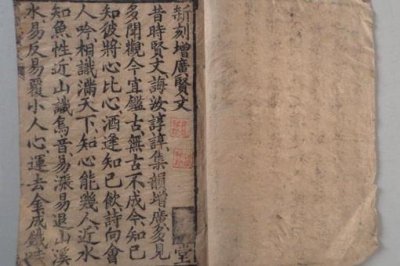 新刻增廣賢文
昔時賢文誨汝諄諄集韻增廣多見
多聞觀今宜鑑古無古不成今知己
知彼將心比心酒逢知己飲詩向會
人吟相識滿天下知心能幾人近水
知魚性近山識鳥音易漲易退山溪
水易反易覆小人心運去金成鐵時
堂